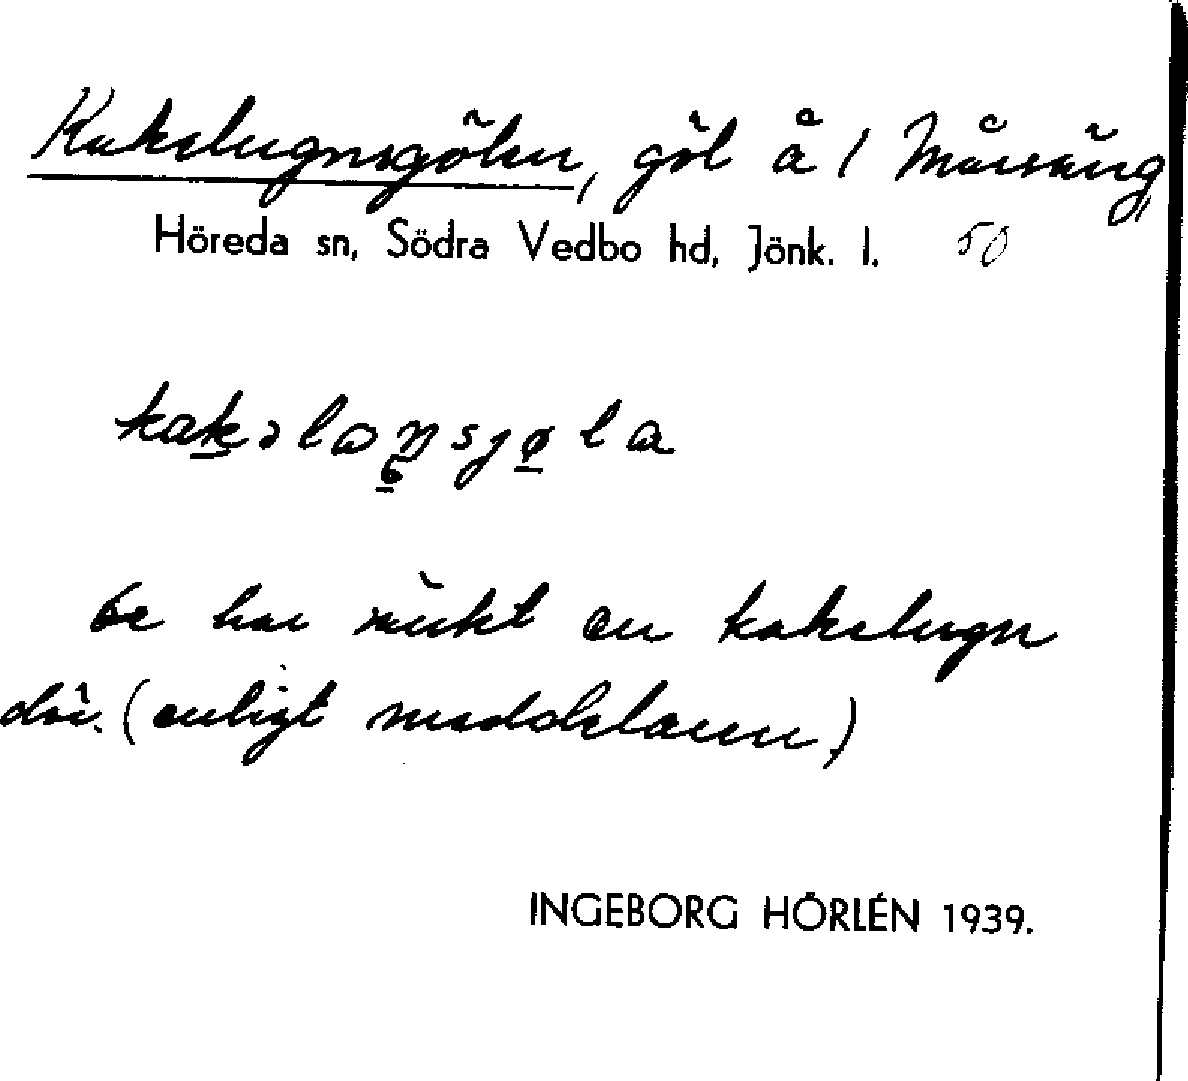 Kakelugnsgölen, göl å 1 Måssäng,
Höreda sn, Södra Vedbo hd, Jönk. l. 50
kakəloŋsjøla
De har mükt en kakelugn
där. (enligt meddelaren)
INGEBORG HÖRLÉN 1939.